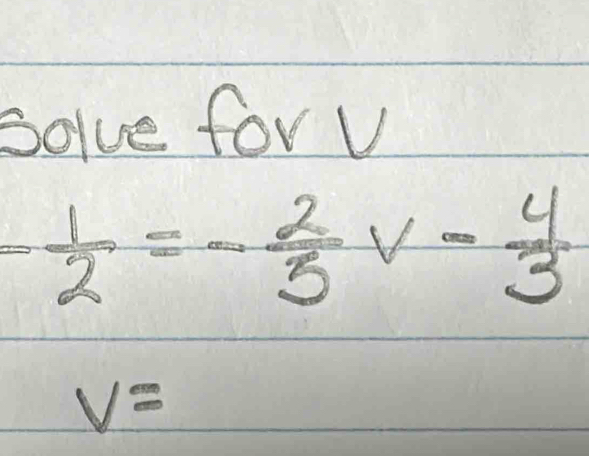 Solve for v
- 1/2 = - 2/5 v - 4/3
v =